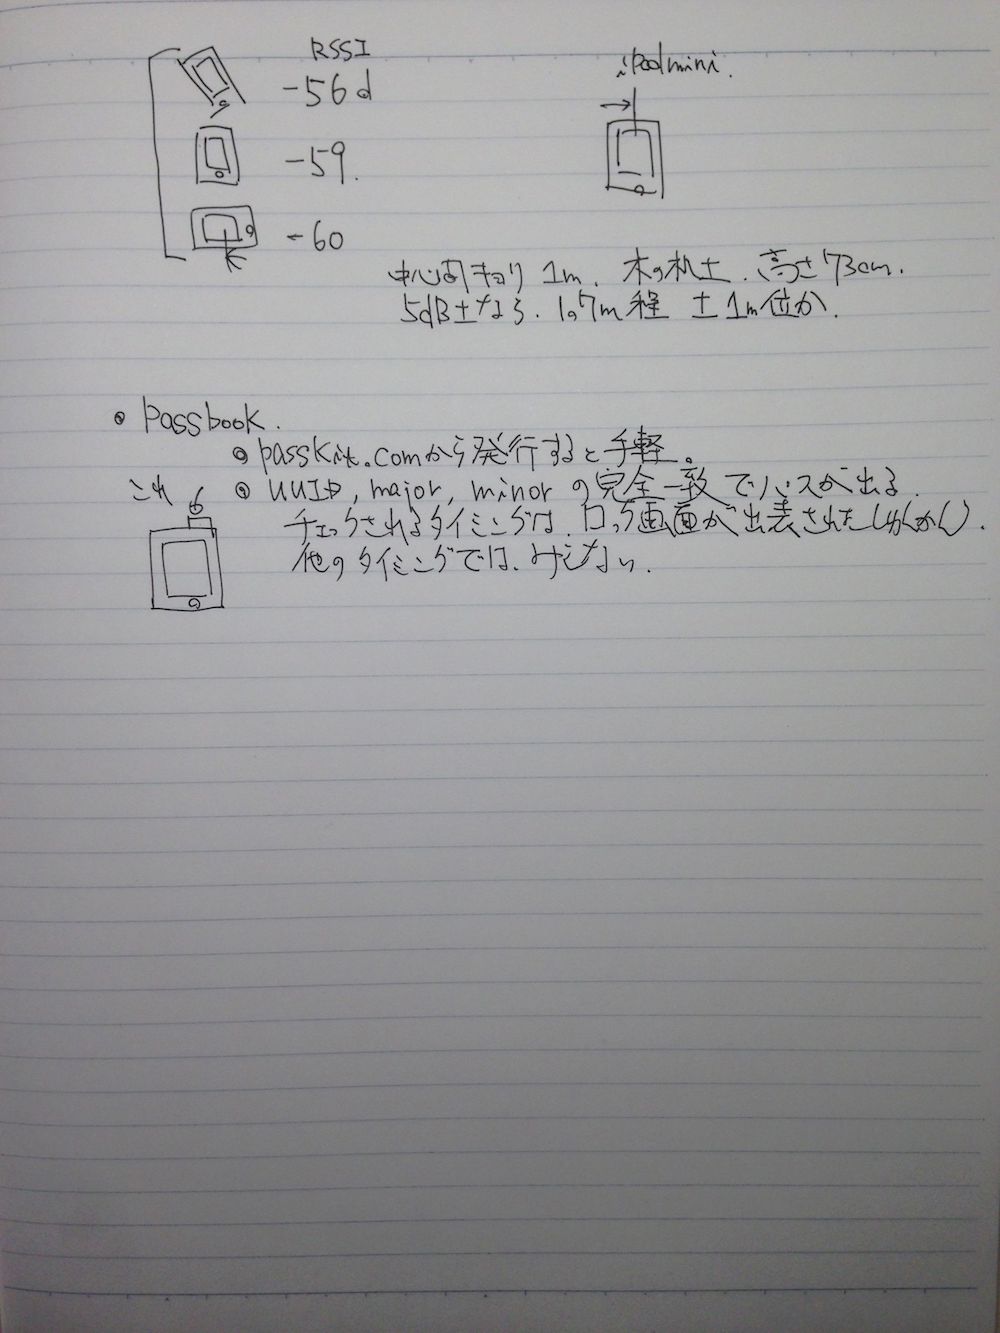 RSSI
-56d
-59.
-60
iPad mini.
中心間キョリ 1m. 木の机上. 高さ73cm.
5dB±なら. 1.7m程 ±1m位か.
Passbook.
passkit.comから発行すると手軽。
これ
UUID, major, minor の完全一致でパスが出る.
チェックされるタイミングは. ロック画面が出表された(しゅんかん).
他のタイミングでは. みじない.